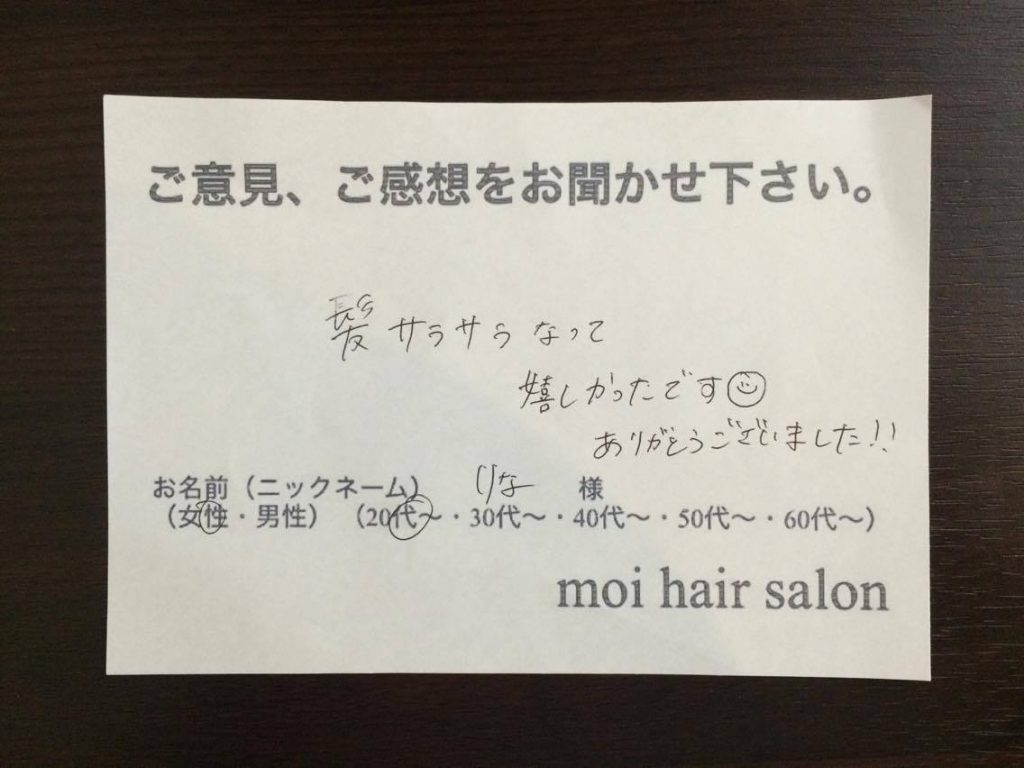 ご意見、ご感想をお聞かせ下さい。
髪サラサラなって
嬉しかったです
ありがとうございました!!
お名前（ニックネーム） りな 様
（女性・男性）（20代〜・30代〜・40代〜・50代〜・60代〜）
moi hair salon